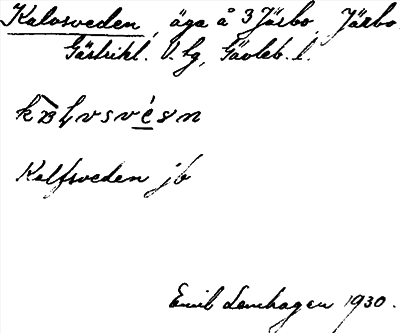 Kalvsveden, äga å 3 Järbo, Järbo.
Gästrikl. V. lg, Gävleb. l.
Kalfsveden jb
Emil Lenhagen 1930.